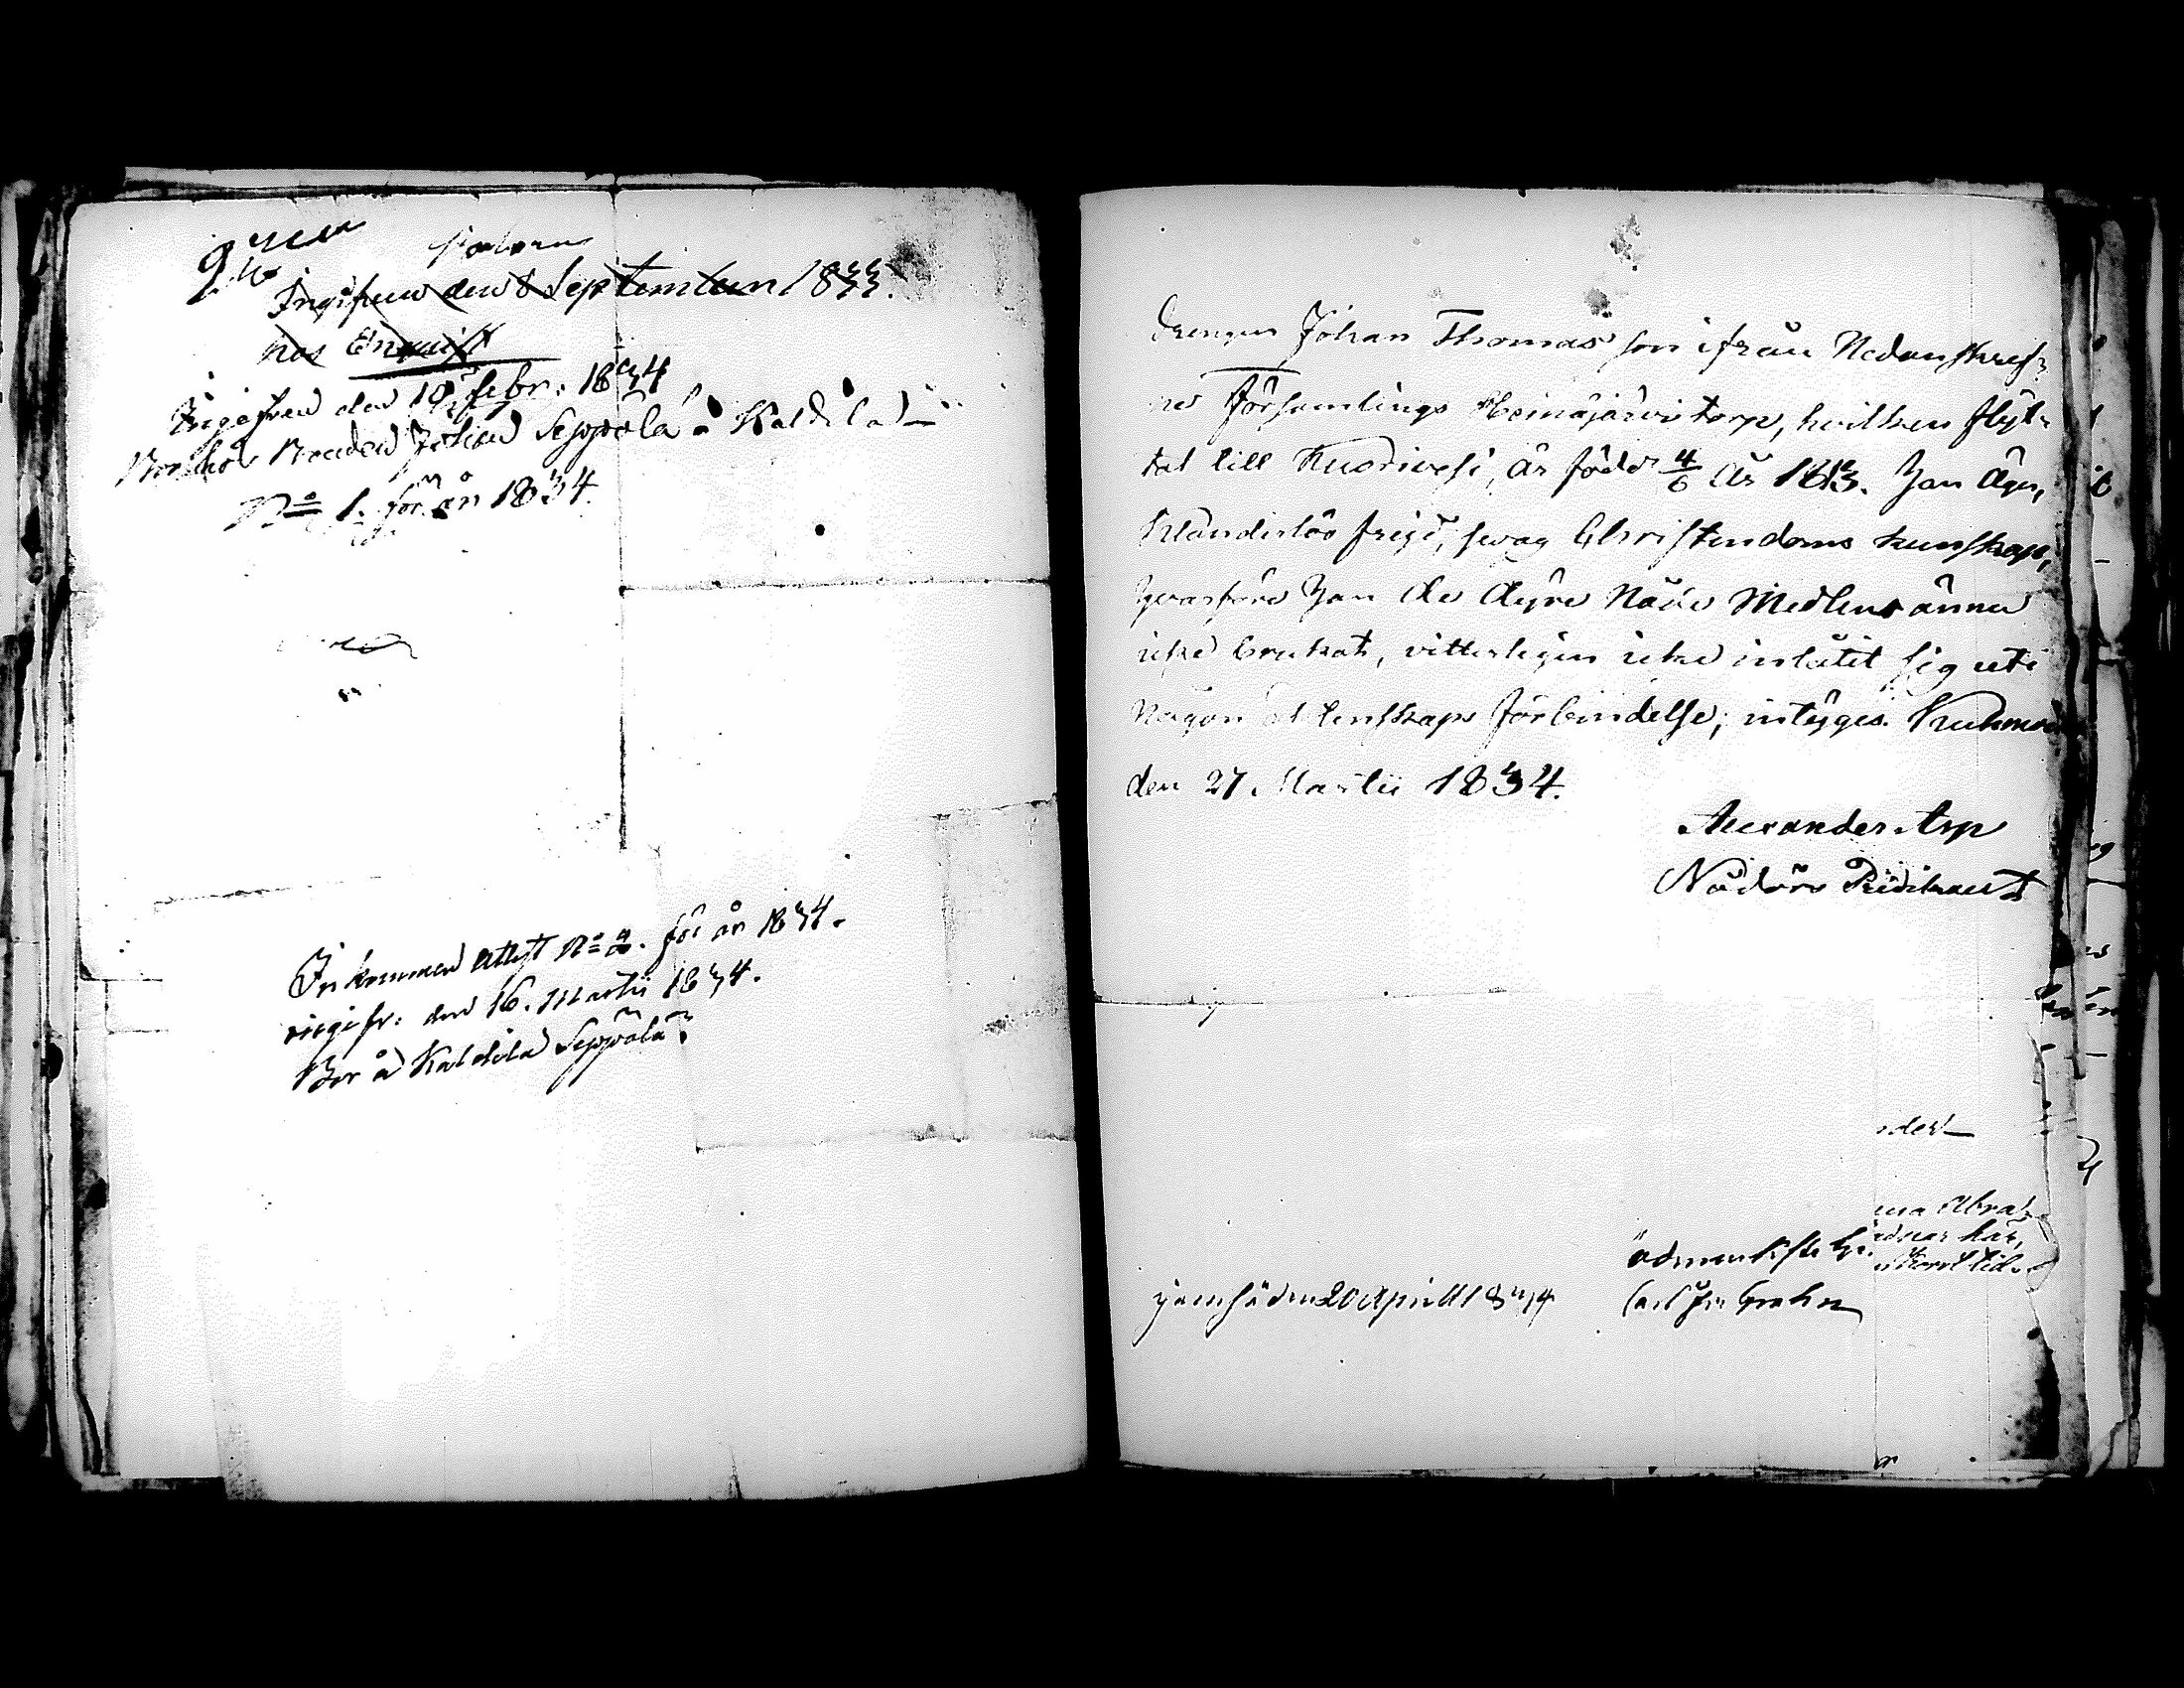 Ingifwen den 8 September 1833.
hos Enqvist
Ingifven den 19 febr: 1834
Bor hos Bonden Johan Seppälä å Kaldila
No 1. för år 1834.
Inkommen Attest No 2. för år 1834.
ingifv: den 16. Martii 1834.
Bor å Kaldila Seppälä
Drengen Johan Thomas son ifrån Nedanskrif-
ne Församlings Heinäjärvi torp, hvilken flyt-
tat till Kuorivesi, är född 4/6 År 1813. Han äger,
Klanderlös frejd, svag Christendoms kunskap,
hvarföre Han de dyre Nåde Medlen ännu
icke brukat, vitterligen icke inlåtit sig uti
någon Ektenskaps förbindelse; intygas. Kuhmois
den 27. Martii 1834.
Alexander Arp
Nådårs Predikant
den 20 April 1834
Carl Grahn